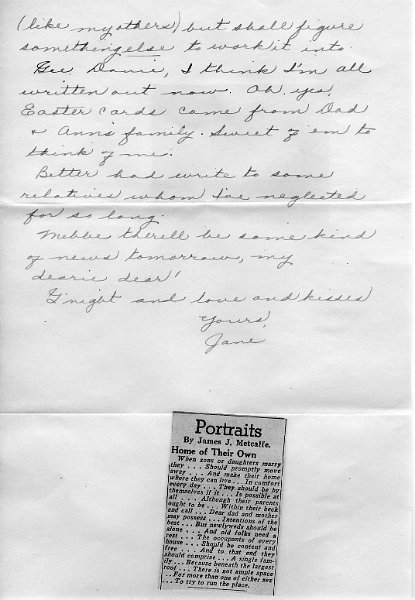 (like my others) but shall figure
something else to work it into.
Gee Davie, I think I'm all
written out now. Oh, yes,
Easter cards came from Dad
& Ann's family. Sweet of 'em to
think of me.
Better had write to some
relatives whom I've neglected
for so long.
Mebbe there'll be some kind
of news tomorrow, my
dearie dear!
G'night and love and kisses
Yours,
Jane
Portraits
By James J. Metcalfe.
Home of Their Own
When sons or daughters marry
they . . . Should promptly move
away . . . And make their home
where they can live . . . In comfort
every day . . . They should be by
themselves if it . . . Is possible at
all . . . Although their parents
ought to be . . . Within their beck
and call . . . Dear dad and mother
may possess . . . Intentions of the
best . . . But newlyweds should be
alone . . . And old folks need a
rest . . . The occupants of every
house . . . Should be content and
free . . . And to that end they
should comprise . . . A single fam-
ily . . . Because beneath the largest
roof . . . There is not ample space
. . . For more than one of either sex
. . . To try to run the place.